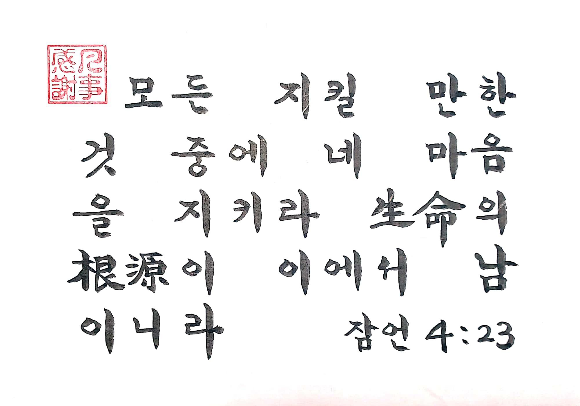 凡事
感謝
모든 지킬 만한
것 중에 네 마음
을 지키라 生命의
根源이 이에서 남
이니라 잠언 4:23